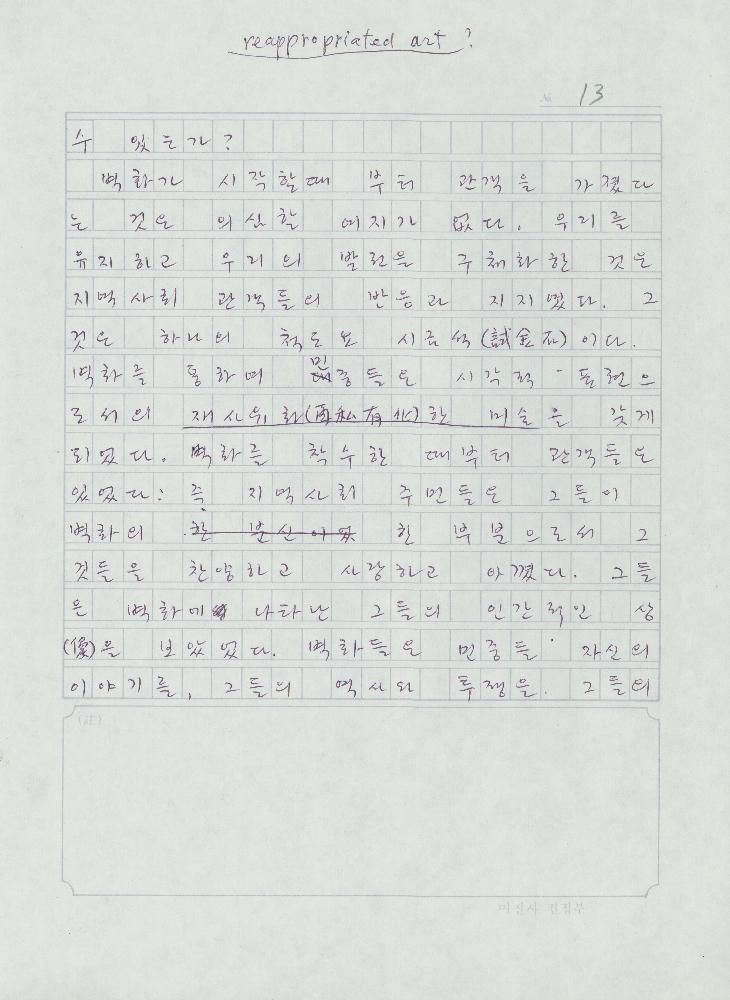 reappropriated art ?
№ 13
수 있는가?
벽화가 시작할때 부터 관객을 가졌다
는 것은 의심할 여지가 없다. 우리를
유지하고 우리의 발전을 구체화한 것은
지역사회 관객들의 반응과 지지였다. 그
것은 하나의 척도요 시금석(試金石)이다.
벽화를 통하여 민중들은 시각적 표현으
로서의 재사유화(再私有化)한 미술을 갖게
되었다. 벽화를 착수한 때부터 관객들은
있었다: 즉 지역사회 주민들은 그들이
벽화의 한 부분으로서 그
것들을 찬양하고 사랑하고 아꼈다. 그들
은 벽화에 나타난 그들의 인간적인 상
(像)을 보았었다. 벽화들은 민중들 자신의
이야기를, 그들의 역사와 투쟁을. 그들의
(註)
미진사 편집부